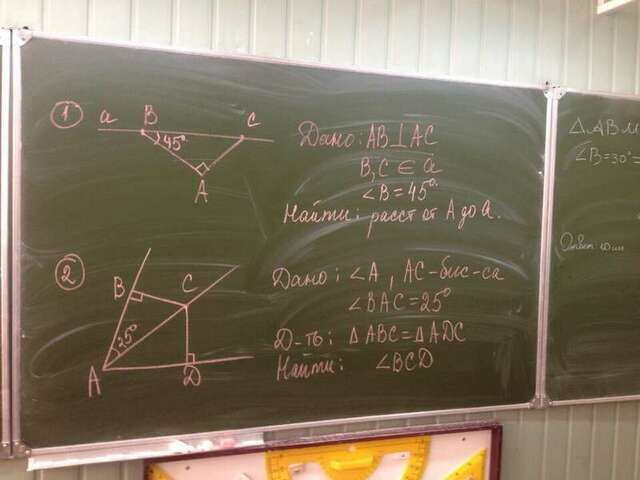 1
a B C
45°
A
Дано: AB⊥AC
B, C ∈ a
∠B=45°
Найти: расст от A до a.
2
B C
25°
A D
Дано: ∠A, AC-бис-са
∠BAC=25°
Д-ть: △ABC=△ADC
Найти: ∠BCD
△ABM
∠B=30°
Ответ: